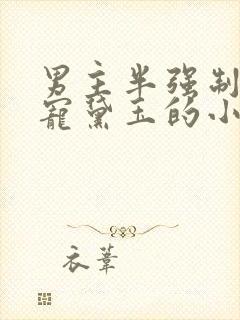 男主半强制
宠黛玉的小
衣苇